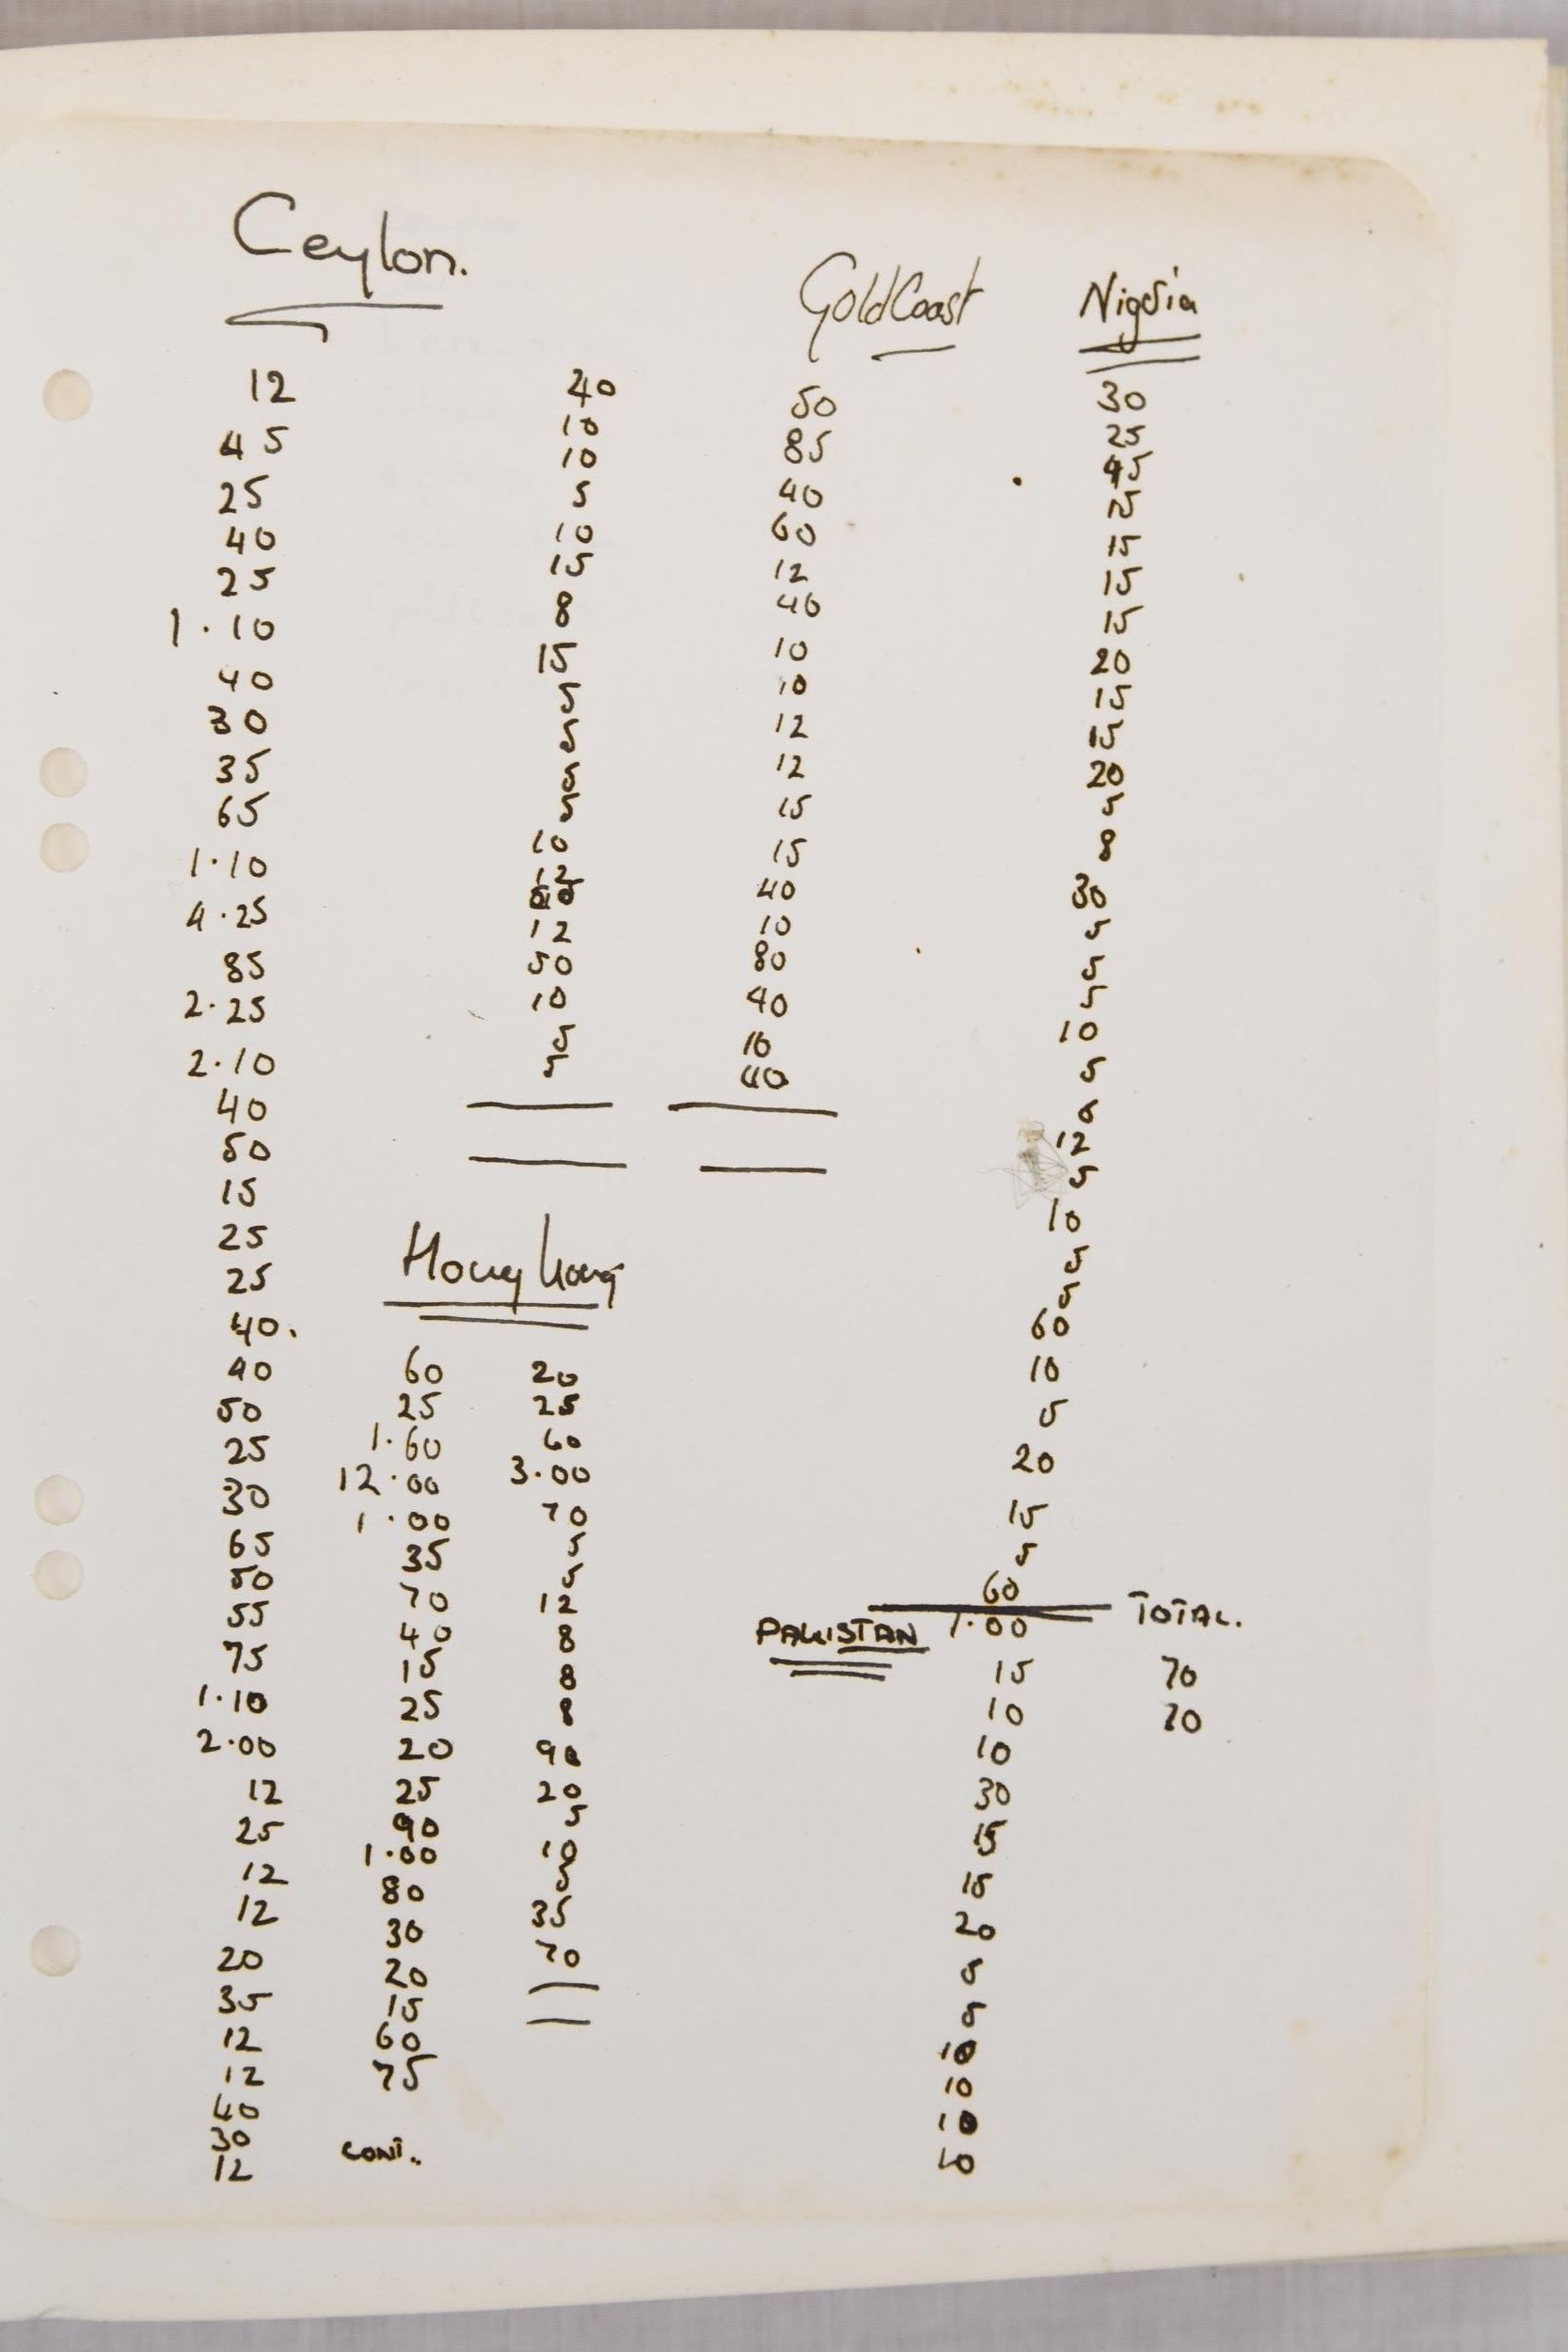 Ceylon.
12
45
25
40
25
1.10
40
30
35
65
1.10
4.25
85
2.25
2.10
40
50
15
25
25
40.
40
50
25
30
65
50
55
75
1.10
2.00
12
25
12
12
20
35
12
12
40
30
12
40
10
10
5
10
15
8
15
5
5
5
5
10
12
12
50
10
5
5
Hong Kong
60
25
1.60
12.00
1.00
35
70
40
15
25
20
25
90
1.00
80
30
20
15
60
75
CONT.
20
25
60
3.00
70
5
5
12
8
8
8
90
20
5
10
5
35
70
Gold Coast
50
85
40
60
12
40
10
10
12
12
15
15
40
10
80
40
10
40
Nigeria
30
25
45
15
15
15
20
15
15
20
5
8
30
5
5
5
10
5
12
5
10
5
5
60
10
5
20
15
5
60
PAKISTAN
1.00
15
10
10
30
15
15
20
5
5
10
10
10
10
TOTAL.
70
70